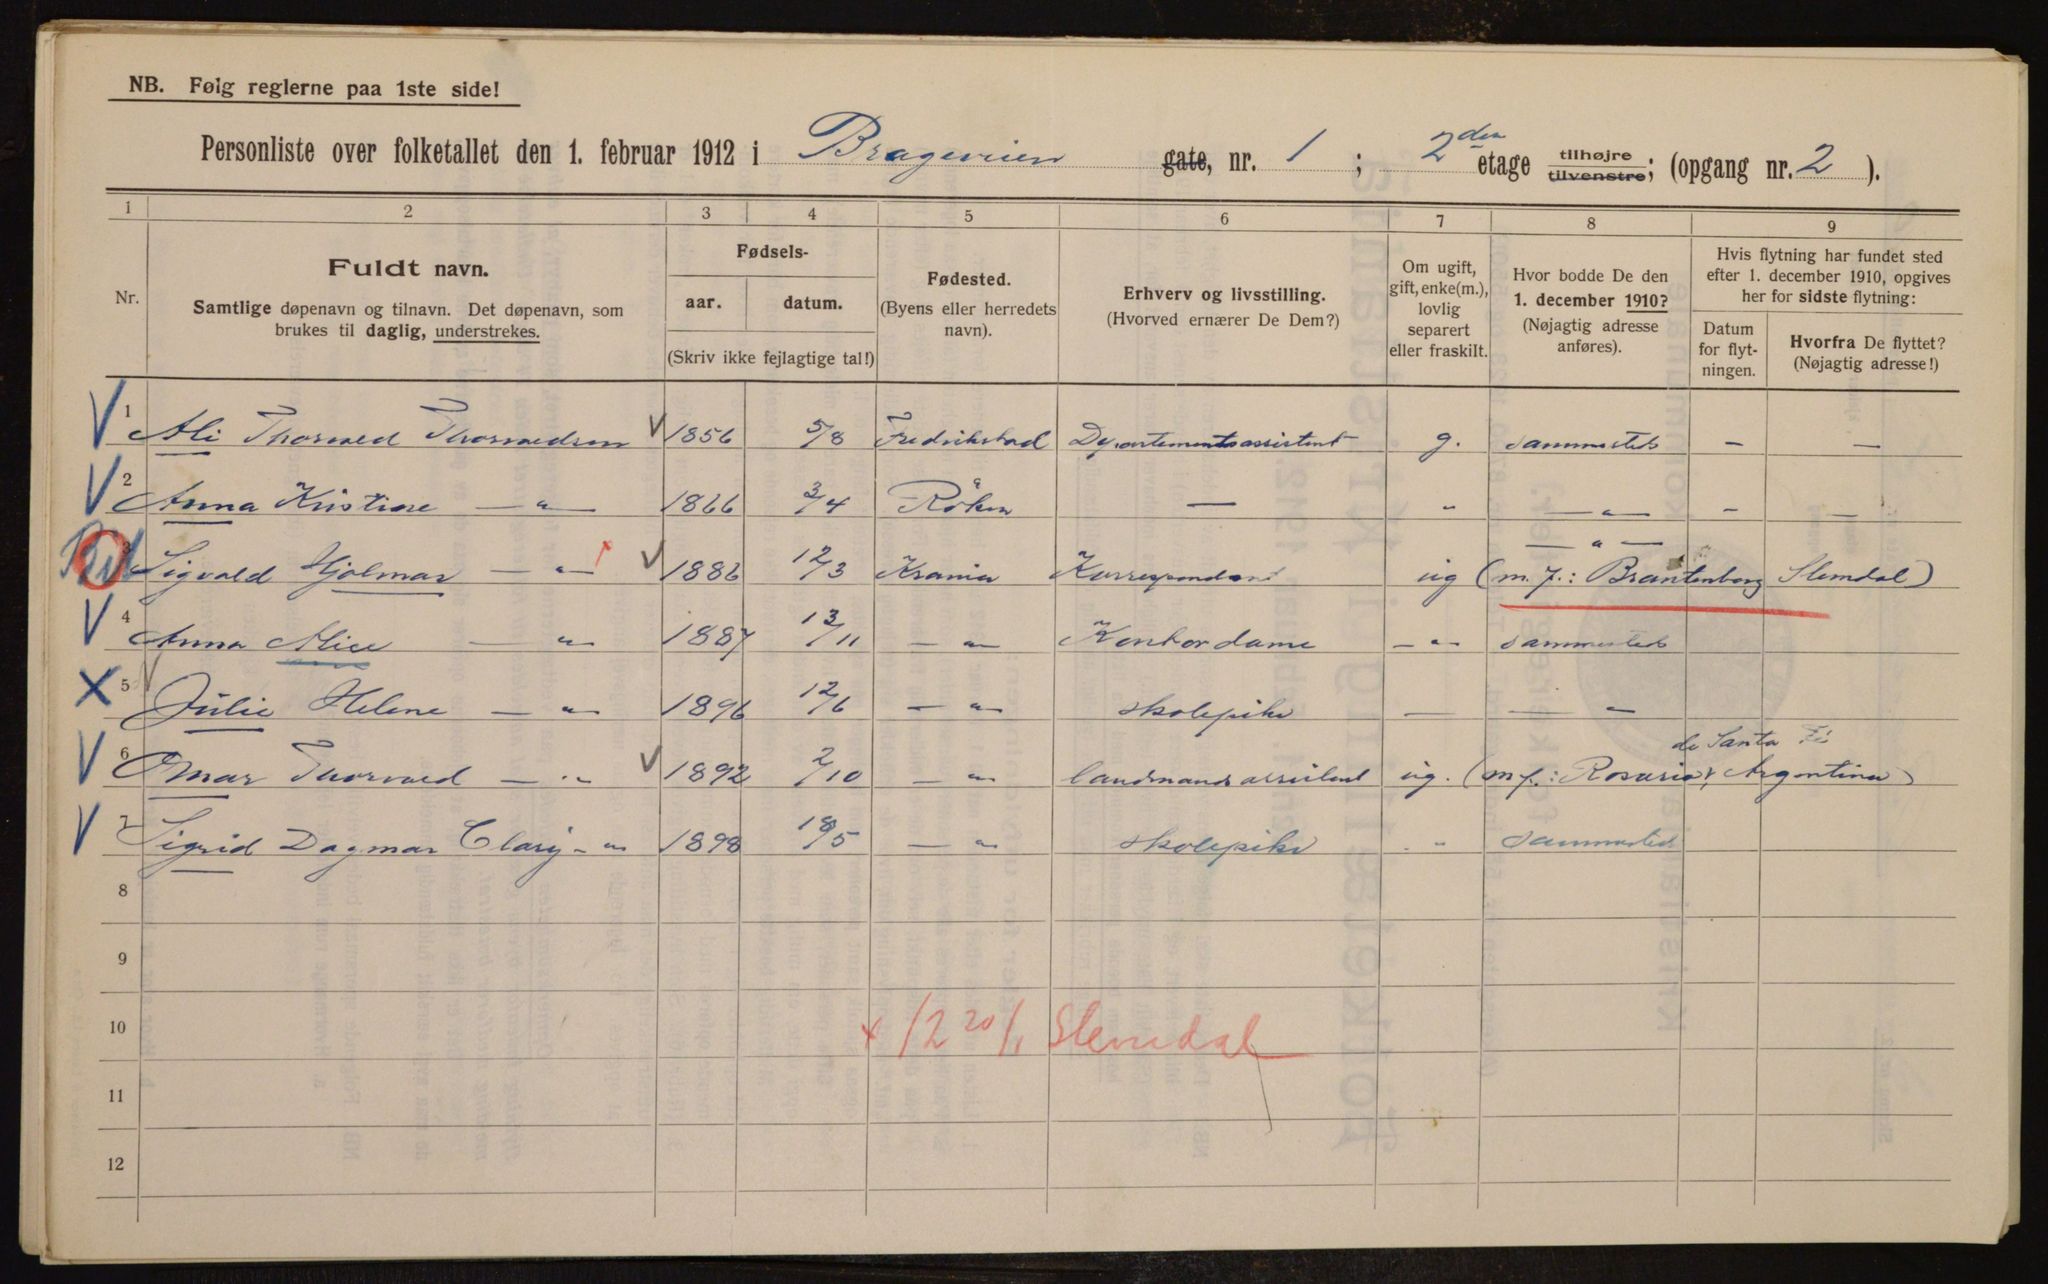 NB. Følg reglerne paa 1ste side!
Personliste over folketallet den 1. februar 1912 i Brageveien gate, nr. 1 ; 2den etage tilhøjre tilvenstre; (opgang nr. 2 ).
1 2 3 4 5 6 7 8 9
Nr.
Fuldt navn.
Samtlige døpenavn og tilnavn. Det døpenavn, som
brukes til daglig, understrekes.
Fødsels-
aar. datum.
(Skriv ikke fejlagtige tal!)
Fødested.
(Byens eller herredets
navn).
Erhverv og livsstilling.
(Hvorved ernærer De Dem?)
Om ugift,
gift, enke(m.),
lovlig
separert
eller fraskilt.
Hvor bodde De den
1. december 1910?
(Nøjagtig adresse
anføres).
Hvis flytning har fundet sted
efter 1. december 1910, opgives
her for sidste flytning:
Datum
for flyt-
ningen.
Hvorfra De flyttet?
(Nøjagtig adresse!)
V 1 Ali Thorvald Thorvaldsen V 1856 5/8 Fredrikstad Departementsassistent g. sammesteds — —
V 2 Anna Kristine — " — 1866 3/4 Røken — " — " — — —
3 Sigvald Hjalmar — " — V 1886 12/3 Krania Korrespondent ug — " — (m. f.: Brantenborg Slemdal)
V 4 Anna Alice — " — 1887 13/11 — " — Kontordame — " — sammesteds
X 5 V Julie Helene — " — 1896 12/6 — " — skolepike — — " —
V 6 Omar Thorvald — " — V 1892 2/10 — " — landmandsassistent ug. (m f.: Rosario de Santa Fé Argentina)
V 7 Sigrid Dagmar Clary — " 1898 18/5 — " skolepike " sammesteds
8
9
10
x /12 20/1 Slemdal
11
12